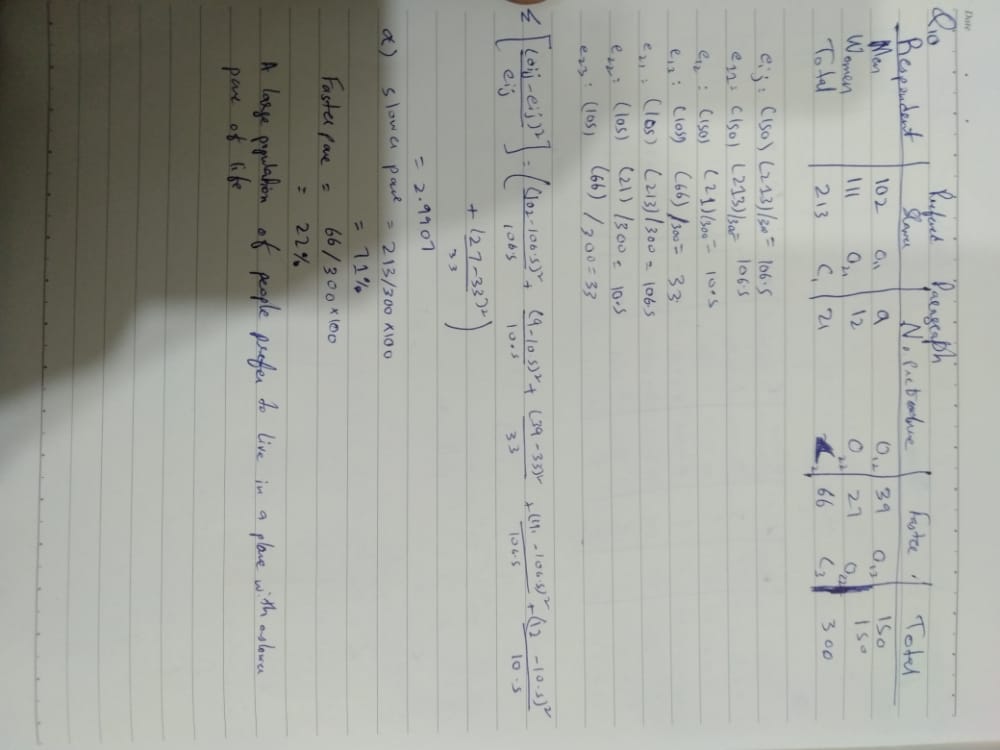 Date
Q10 Prefered Paragraph
Respondent Slower No. preterdure Faster Total
Men 102 O11 9 O12 39 O13 150
Women 111 O21 12 O22 27 O22 150
Total 213 C1 21 C2 66 C3 300
eij: (150) (213)/300= 106.5
e11: (150) (213)/300= 106.5
e12: (150) (21)/300= 10.5
e13: (105) (66) /300= 33
e21: (105) (213)/300= 106.5
e22: (105) (21) /300= 10.5
e23: (105) (66) /300=33
Σ [(oij-eij)²/eij] = ((102-106.5)²/106.5 + (9-10.5)²/10.5 + (39-33)²/33 + (111-106.5)²/106.5 + (12-10.5)²/10.5
+ (27-33)²/33)
= 2.9907
a) slower pace = 213/300 x100
= 71%
Faster pace = 66/300 x100
= 22%
A large population of people prefer to live in a place with a slower
pace of life